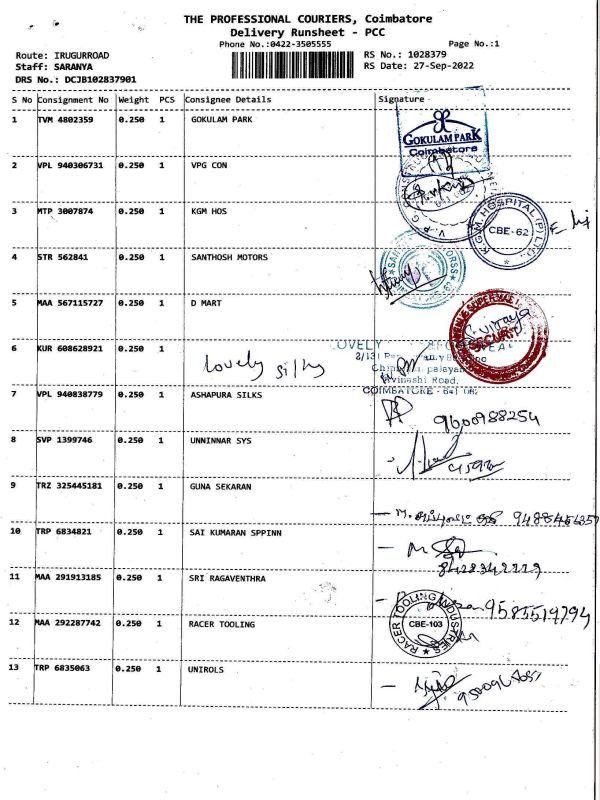 THE PROFESSIONAL COURIERS, Coimbatore
Delivery Runsheet - PCC
Phone No.:0422-3505555 Page No.:1
Route: IRUGURROAD RS No.: 1028379
Staff: SARANYA RS Date: 27-Sep-2022
DRS No.: DCJB102837901
S No Consignment No Weight PCS Consignee Details Signature
1 TVM 4802359 0.250 1 GOKULAM PARK
GOKULAM PARK
Coimbatore
2 VPL 940306731 0.250 1 VPG CON
3 MTP 3007874 0.250 1 KGM HOS
K.G.M. HOSPITAL (P) LTD.,
CBE-62
4 STR 562841 0.250 1 SANTHOSH MOTORS
5 MAA 567115727 0.250 1 D MART
SECURIT
6 KUR 608628921 0.250 1
Lovely silks
OVELY
Avinashi Road,
COIMBATORE - 641 062
7 VPL 940838779 0.250 1 ASHAPURA SILKS
9600988254
8 SVP 1399746 0.250 1 UNNINNAR SYS
9 TRZ 325445181 0.250 1 GUNA SEKARAN
10 TRP 6834821 0.250 1 SAI KUMARAN SPPINN
11 MAA 291913185 0.250 1 SRI RAGAVENTHRA
9585519794
12 MAA 292287742 0.250 1 RACER TOOLING
RACER TOOLING INDUSTRIES
CBE-103
13 TRP 6835063 0.250 1 UNIROLS